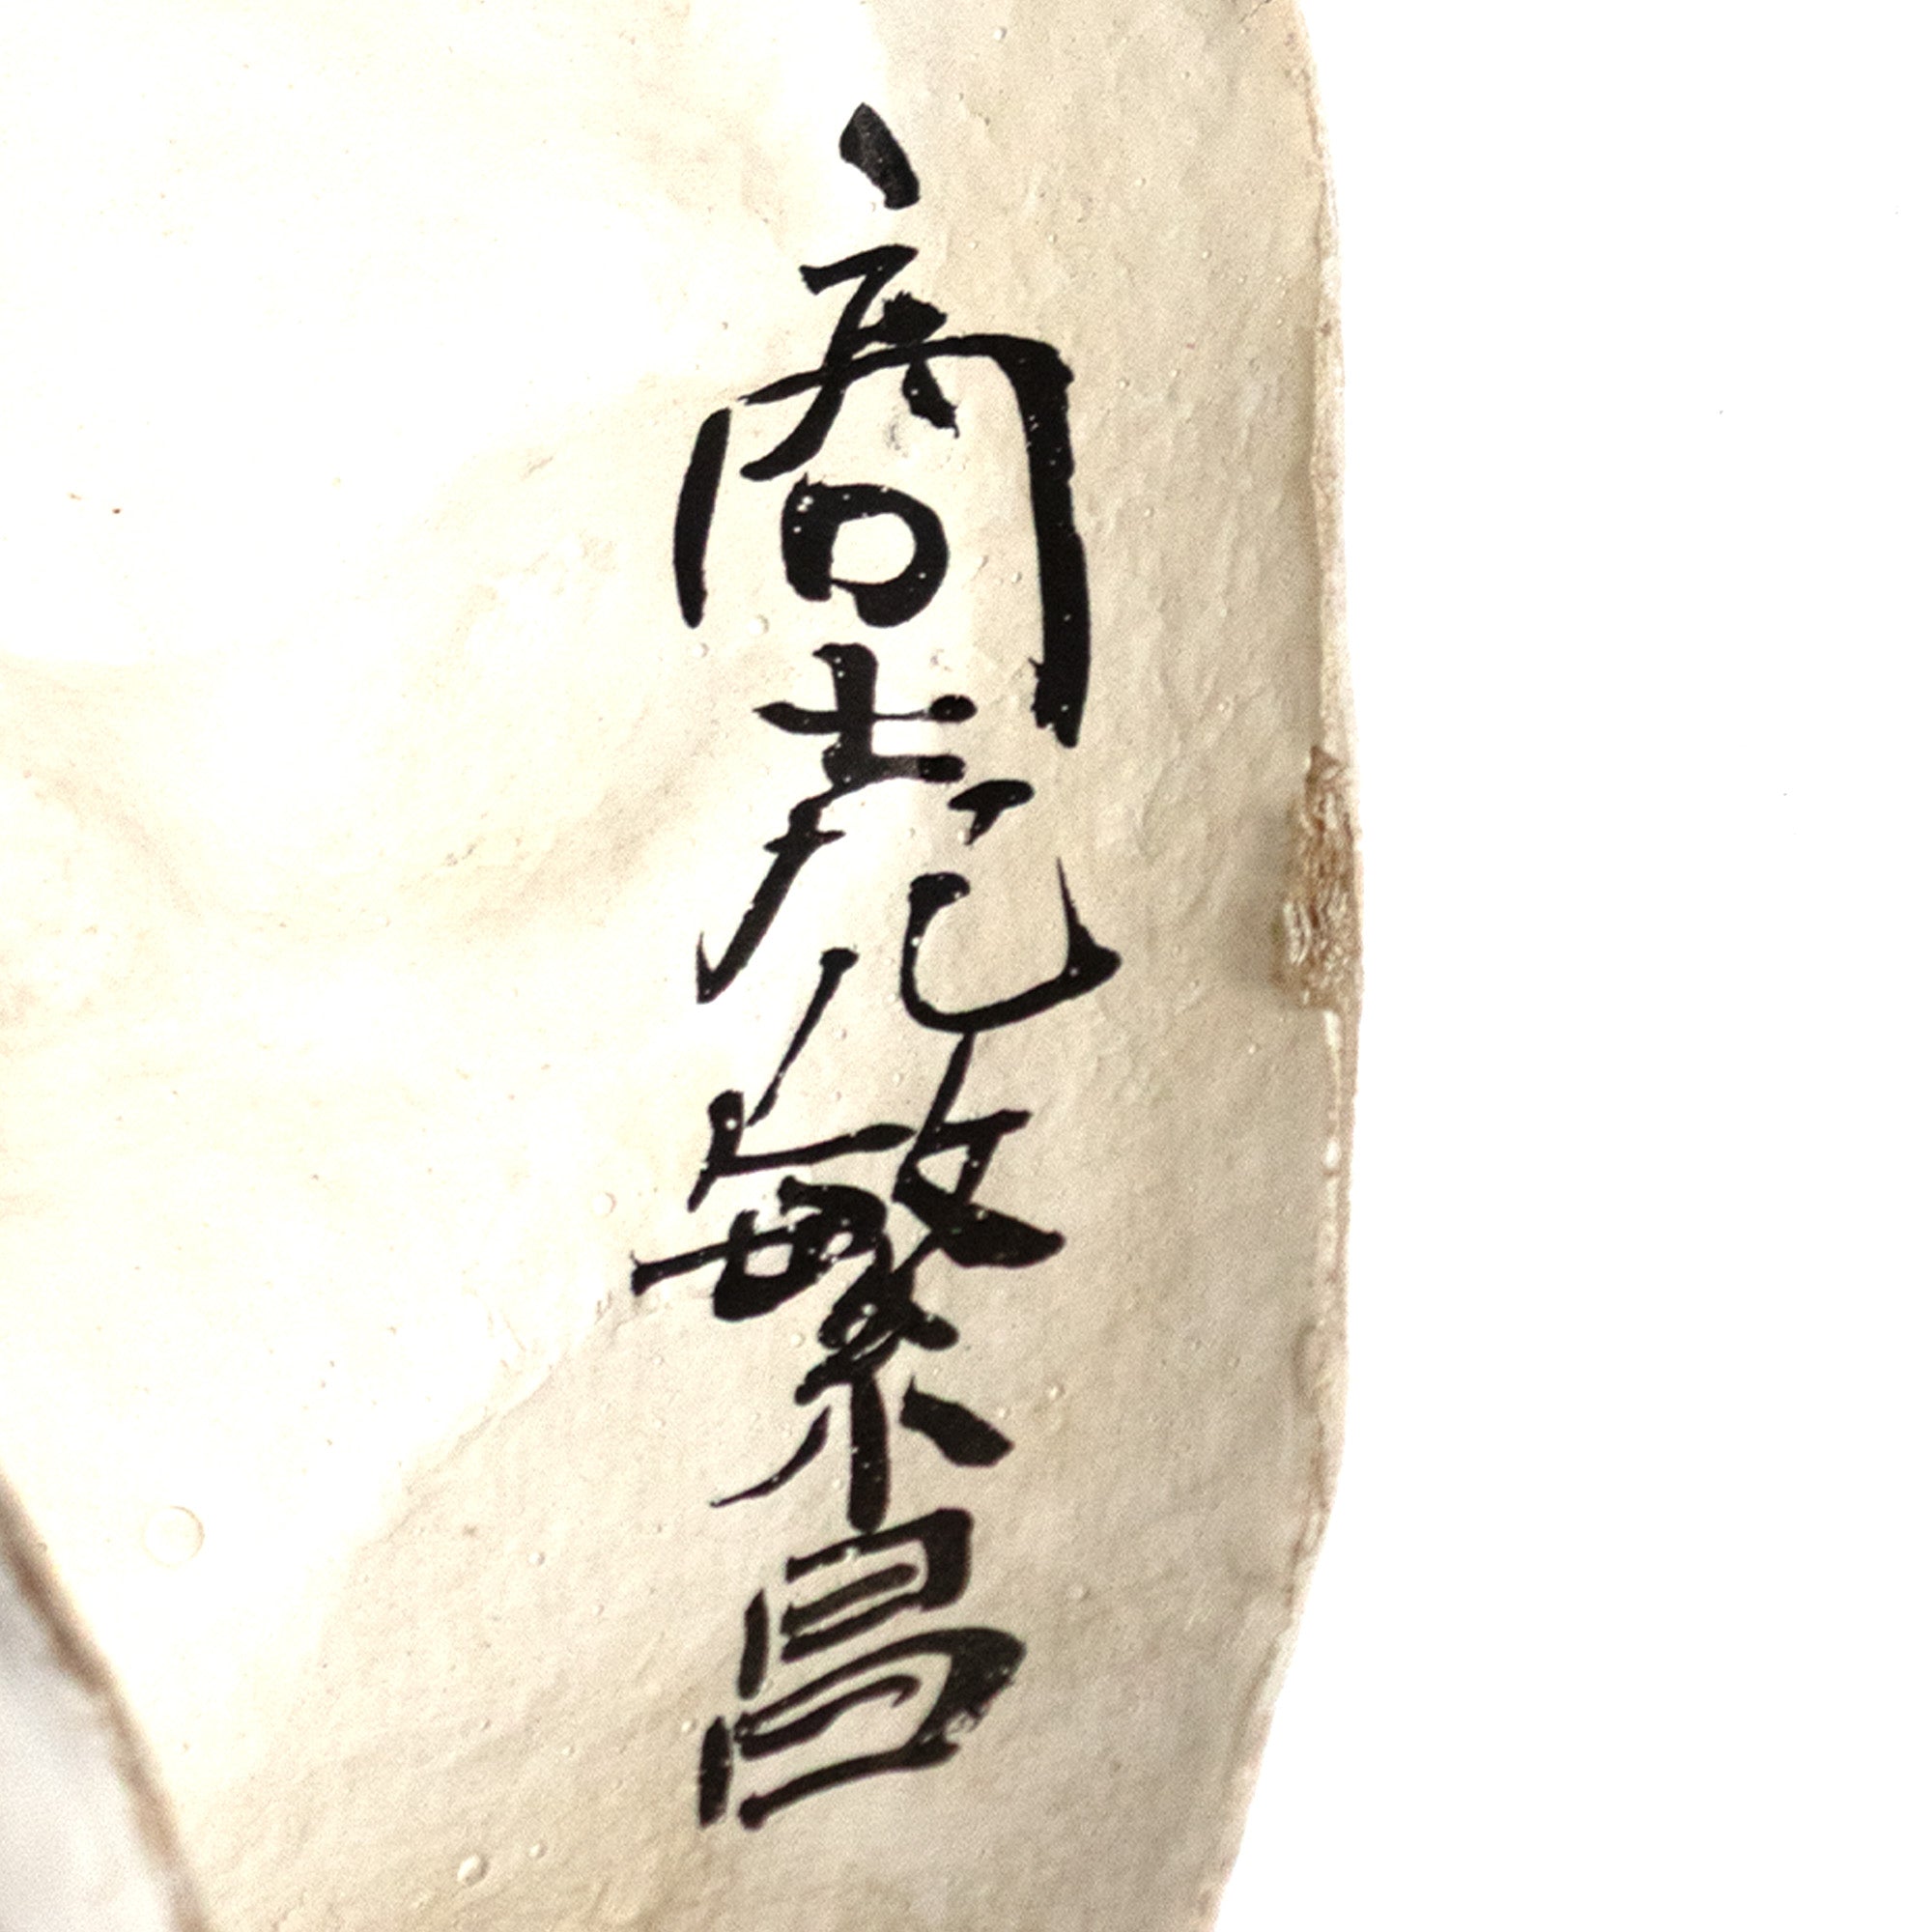 商売繁昌